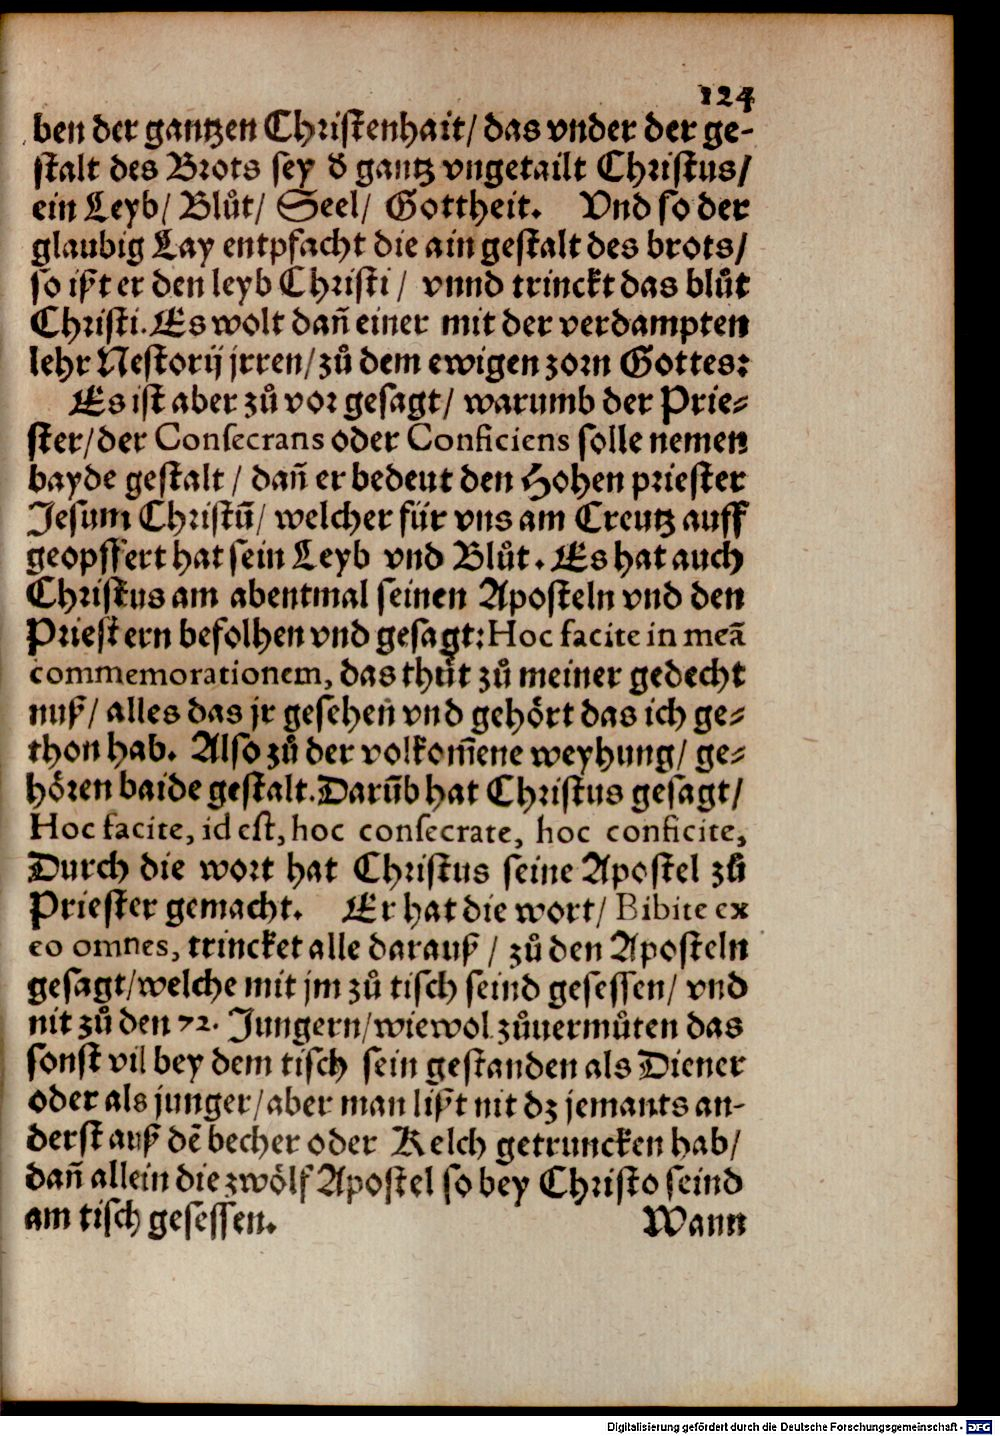 124
ben der gantzen Christenhait/ das vnder der ge-
stalt des Brots sey d̕ gantz vngetailt Christus/
ein Leyb/ Blůt/ Seel/ Gottheit. Vnd so der
glaubig Lay entpfacht die ain gestalt des brots/
so ißt er den leyb Christi / vnnd trinckt das blůt
Christi. Es wolt dañ einer mit der verdampten
lehr Nestorij jrren/ zů dem ewigen zorn Gottes:
Es ist aber zů vor gesagt/ warumb der Prie-
ster/ der Consecrans oder Conficiens solle nemen
bayde gestalt / dañ er bedeut den Hohen priester
Jesum Christū/ welcher für vns am Creutz auff
geopffert hat sein Leyb vnd Blůt. Es hat auch
Christus am abentmal seinen Aposteln vnd den
Priestern befolhen vnd gesagt: Hoc facite in meā
commemorationem, das thůt zů meiner gedecht
nuß/ alles das jr gesehen vnd gehört das ich ge-
thon hab. Also zů der volkom̄ene weyhung/ ge-
hören baide gestalt. Darūb hat Christus gesagt/
Hoc facite, id est, hoc consecrate, hoc conficite,
Durch die wort hat Christus seine Apostel zů
Priester gemacht. Er hat die wort/ Bibite ex
eo omnes, trincket alle darauß / zů den Aposteln
gesagt/ welche mit jm zů tisch seind gesessen/ vnd
nit zů den 72. Jungern/ wiewol zůuermůten das
sonst vil bey dem tisch sein gestanden als Diener
oder als junger/ aber man lißt nit dz jemants an-
derst auß dē becher oder Kelch getruncken hab/
dañ allein die zwölf Apostel so bey Christo seind
am tisch gesessen. Wann
Digitalisierung gefördert durch die Deutsche Forschungsgemeinschaft - DFG